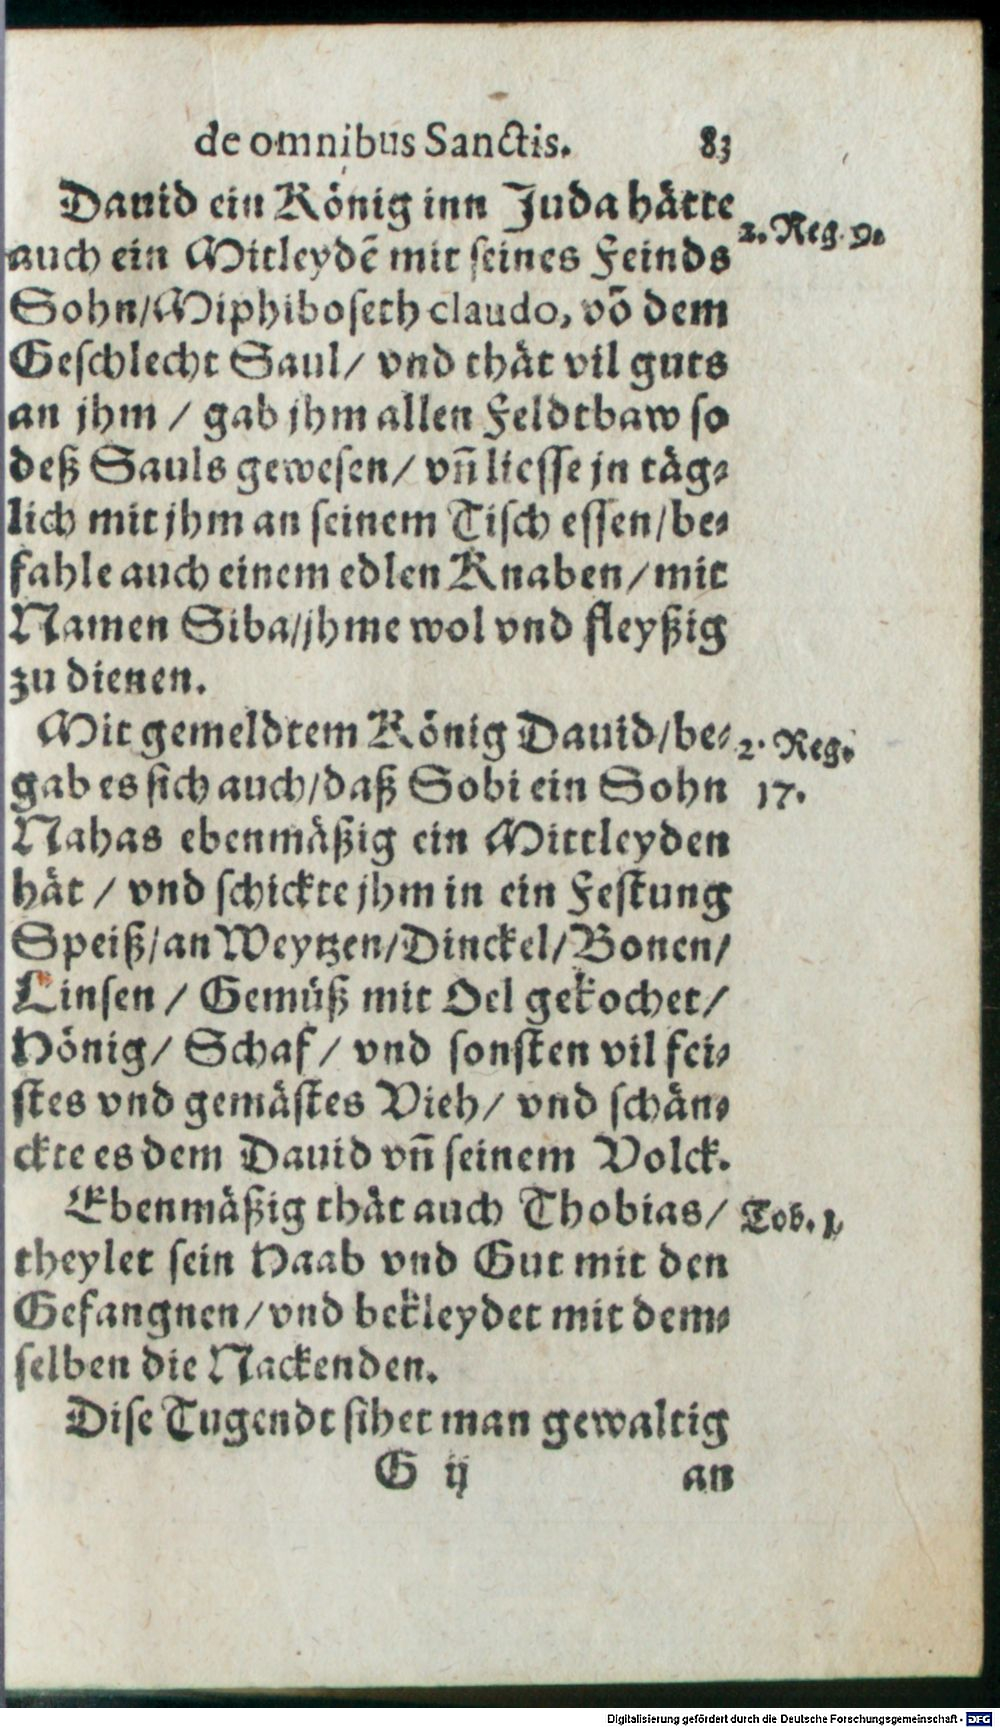 de omnibus Sanctis. 83
Dauid ein König inn Juda hätte
2. Reg. 9.
auch ein Mitleydẽ mit seines Feinds
Sohn/Miphiboseth claudo, võ dem
Geschlecht Saul/ vnd thät vil guts
an jhm / gab jhm allen Feldtbaw so
deß Sauls gewesen/ vñ liesse jn täg-
lich mit jhm an seinem Tisch essen/be-
fahle auch einem edlen Knaben/mit
Namen Siba/jhme wol vnd fleyßig
zu dienen.
Mit gemeldtem König Dauid/be-
2. Reg.
gab es sich auch/daß Sobi ein Sohn
17.
Nahas ebenmäßig ein Mittleyden
hät / vnd schickte jhm in ein Festung
Speiß/an Weytzen/Dinckel/Bonen/
Linsen / Gemüß mit Oel gekochet/
Hönig/ Schaf/ vnd sonsten vil fei-
stes vnd gemästes Vieh/ vnd schän-
ckte es dem Dauid vñ seinem Volck.
Ebenmäßig thät auch Thobias/
Tob. 1.
theylet sein Haab vnd Gut mit den
Gefangnen/vnd bekleydet mit dem-
selben die Nackenden.
Dise Tugendt sihet man gewaltig
G ij an
Digitalisierung gefördert durch die Deutsche Forschungsgemeinschaft - DFG